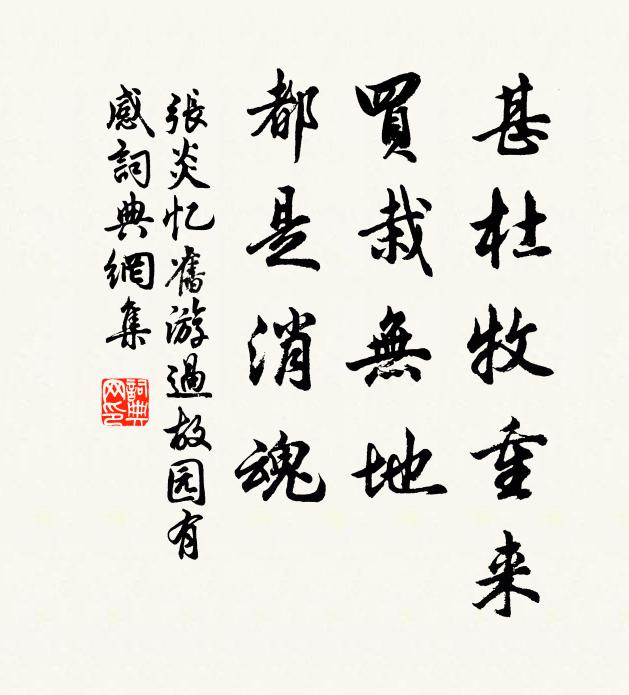 甚杜牧重来
買栽無地
都是消魂
張炎忆舊游過故园有
感詞典網集
詞典
网印